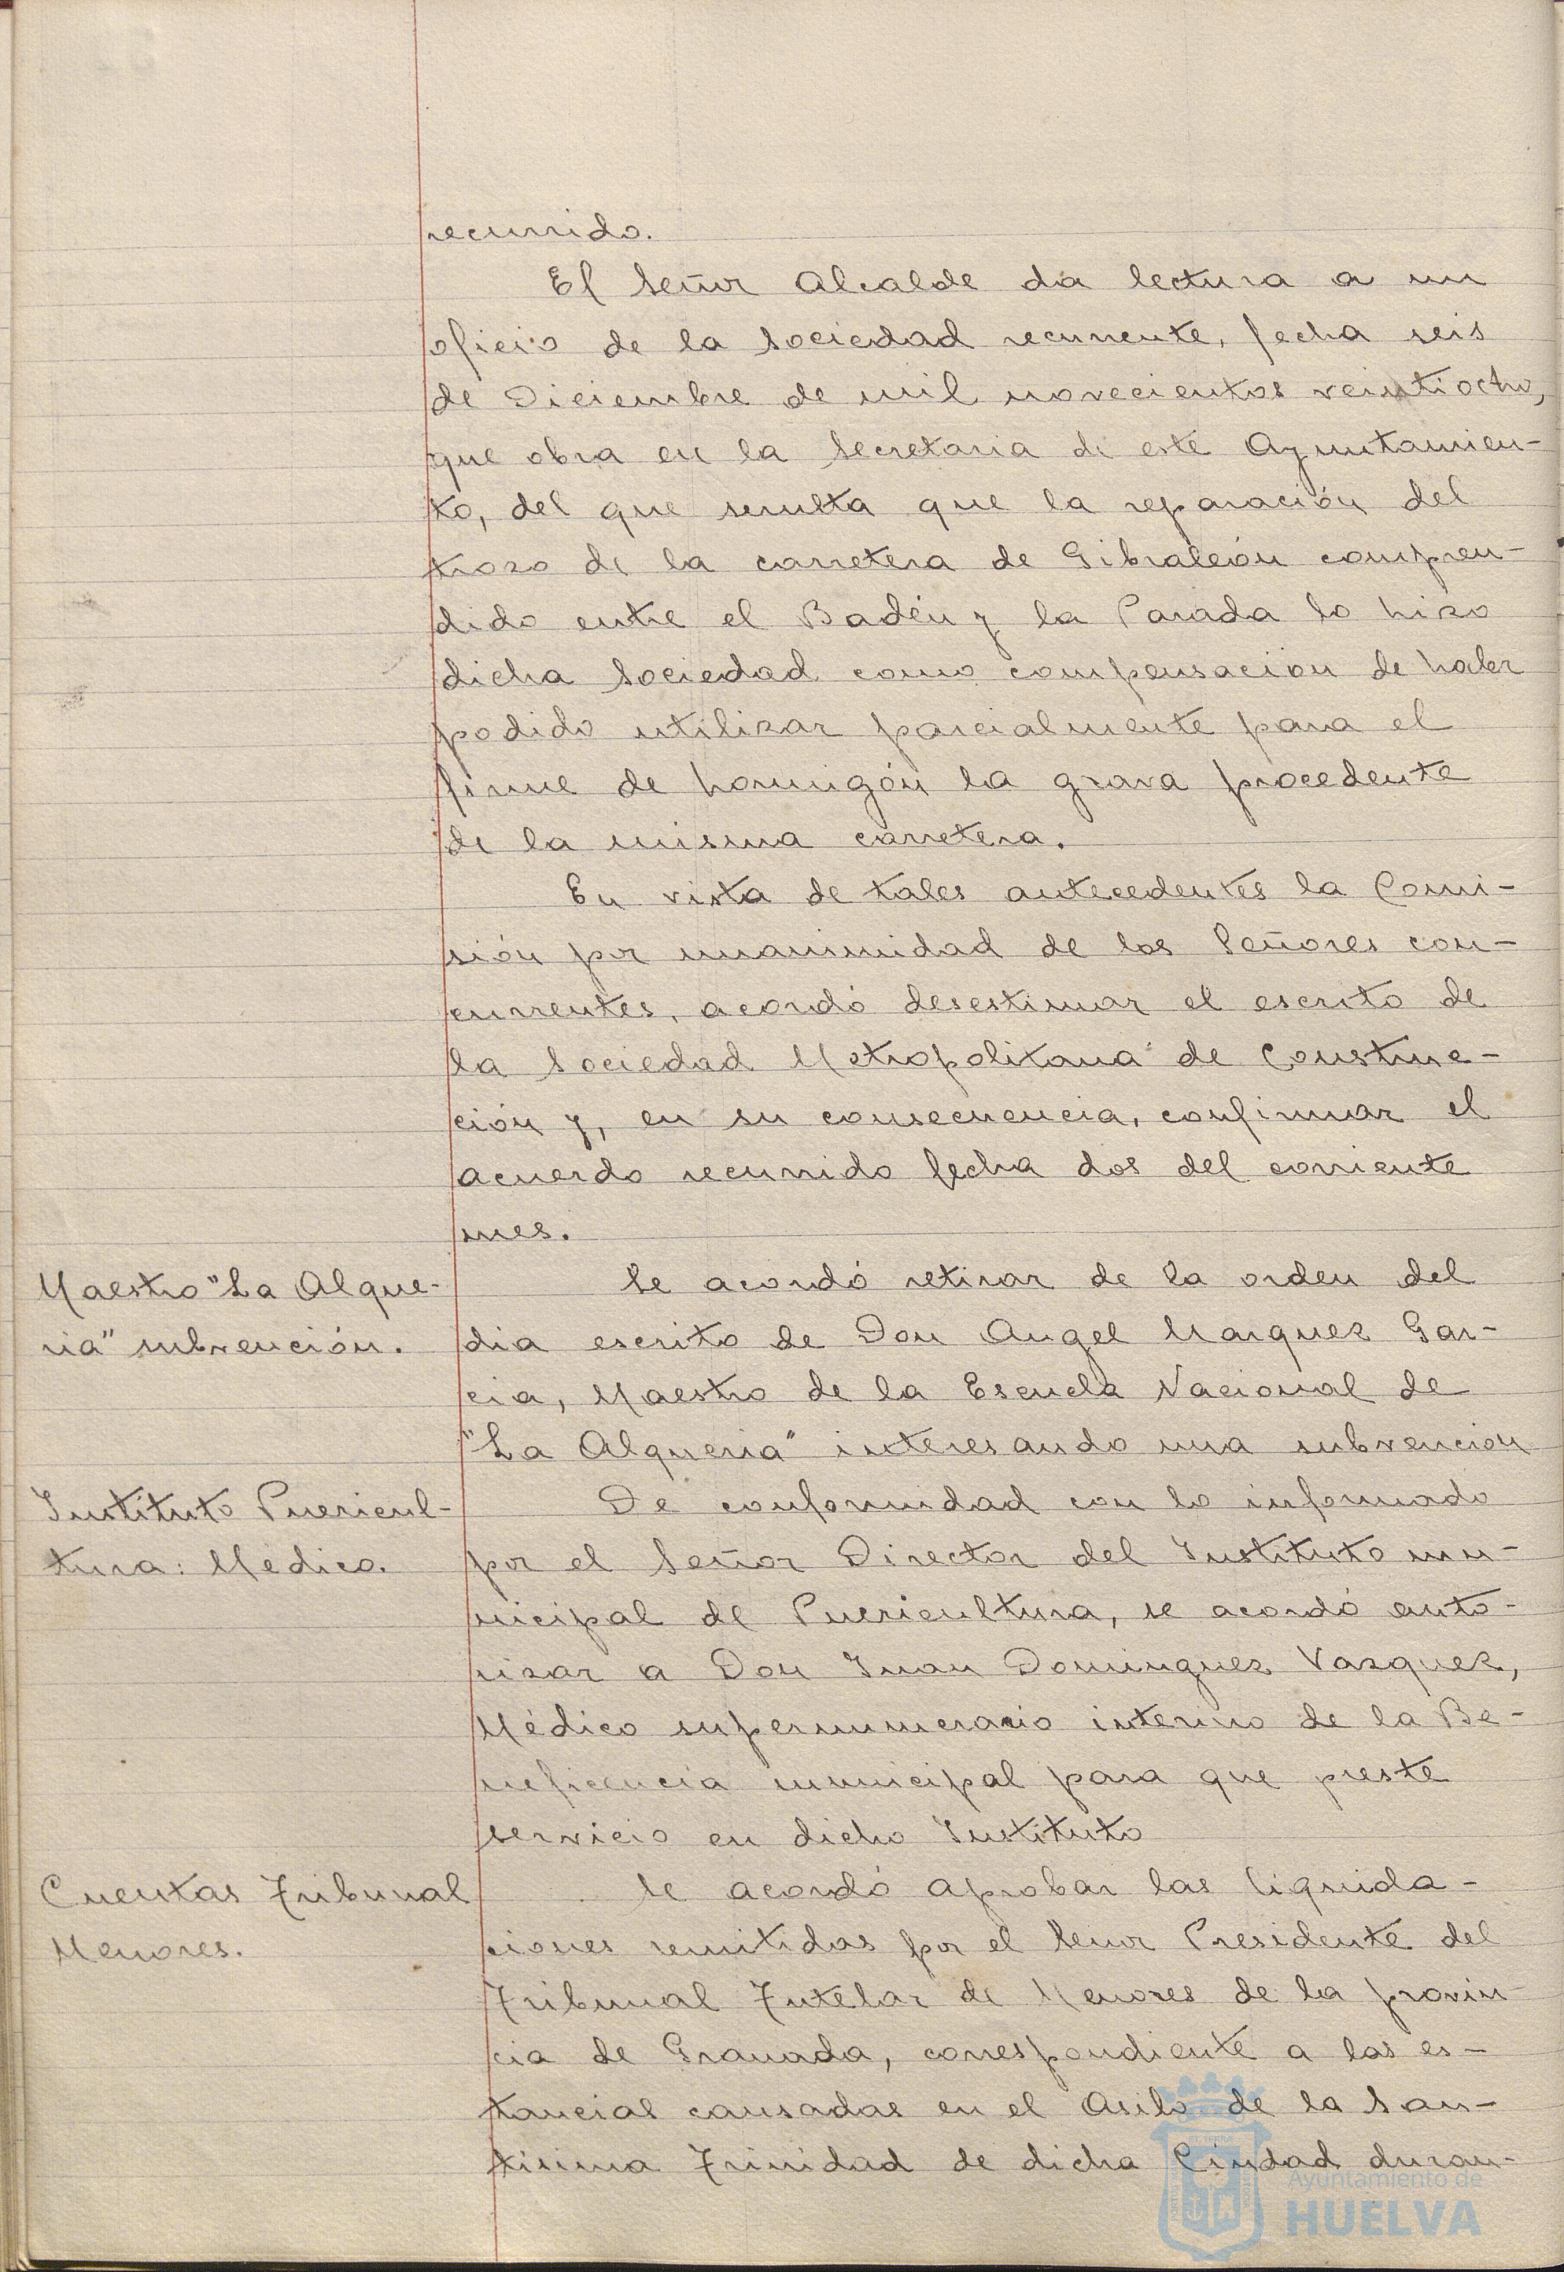 recurrido.
El Señor Alcalde da lectura a un
oficio de la Sociedad recurrente, fecha seis
de Diciembre de mil novecientos veintiocho,
que obra en la Secretaria de este Ayuntamien-
to, del que resulta que la reparación del
trozo de la carretera de Gibraleón compren-
dido entre el Badén y la Parada lo hizo
dicha Sociedad como compensación de haber
podido utilizar parcialmente para el
firme de hormigón la grava procedente
de la misma carretera.
En vista de tales antecedentes la Comi-
sión por unanimidad de los Señores con-
currentes, acordó desestimar el escrito de
la Sociedad Metropolitana de Construc-
ción y, en su consecuencia, confirmar el
acuerdo recurrido fecha dos del corriente
mes.
Maestro "La Alque-
ria" subvención.
Se acordó retirar de la orden del
dia escrito de Don Angel Marquez Gar-
cia, Maestro de la Escuela Nacional de
"La Alqueria" interesando una subvencion
Instituto Puericul-
tura: Médico.
De conformidad con lo informado
por el Señor Director del Instituto mu-
nicipal de Puericultura, se acordó auto-
rizar a Don Juan Dominguez Vazquez,
Médico supernumerario interino de la Be-
neficencia municipal para que preste
servicio en dicho Instituto
Cuentas Tribunal
Menores.
Se acordó aprobar las liquida-
ciones remitidas por el Señor Presidente del
Tribunal Tutelar de Menores de la provin
cia de Granada, correspondiente a las es-
tancias causadas en el Asilo de la San-
tisima Trinidad de dicha Ciudad duran-
Ayuntamiento de
HUELVA